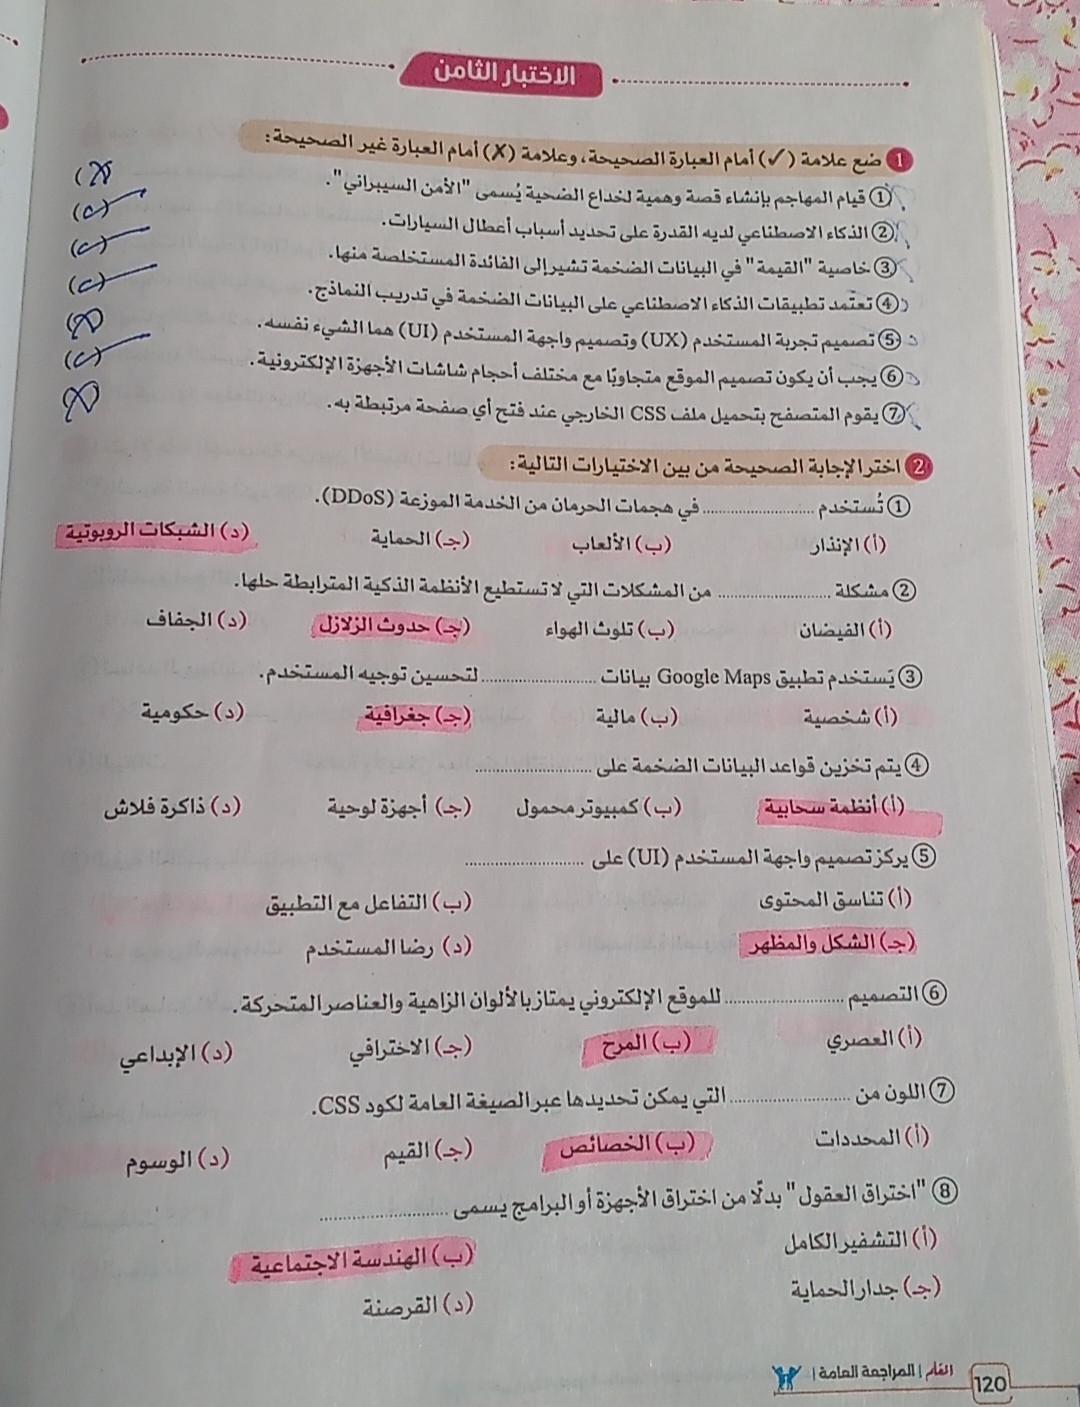 الاختبار الثامن
1 ضع علامة (✓) أمام العبارة الصحيحة، وعلامة (✗) أمام العبارة غير الصحيحة:
① قيام المهاجم بإنشاء قصة وهمية لخداع الضحية يُسمى "الأمن السيبراني". (✗)
② الذكاء الاصطناعي لديه القدرة على تحديد أسباب أعطال السيارات. (✓)
③ خاصية "القيمة" في البيانات الضخمة تشير إلى الفائدة المستخلصة منها. (✓)
④ تعتمد تطبيقات الذكاء الاصطناعي على البيانات الضخمة في تدريب النماذج. (✓)
⑤ تصميم تجربة المستخدم (UX) وتصميم واجهة المستخدم (UI) هما الشيء نفسه. (✗)
⑥ يجب أن يكون تصميم الموقع متجاوبًا مع مختلف أحجام شاشات الأجهزة الإلكترونية. (✓)
⑦ يقوم المتصفح بتحميل ملف CSS الخارجي عند فتح أي صفحة مرتبطة به. (✗)
2 اختر الإجابة الصحيحة من بين الاختيارات التالية:
① تُستخدم .................... في هجمات الحرمان من الخدمة الموزعة (DDoS).
(أ) الإنذار (ب) الألعاب (جـ) الحماية (د) الشبكات الروبوتية
② مشكلة .................... من المشكلات التي لا تستطيع الأنظمة الذكية المترابطة حلها.
(أ) الفيضان (ب) تلوث الهواء (جـ) حدوث الزلازل (د) الجفاف
③ يَستخدم تطبيق Google Maps بيانات .................... لتحسين توجيه المستخدم.
(أ) شخصية (ب) مالية (جـ) جغرافية (د) حكومية
④ يتم تخزين قواعد البيانات الضخمة على ....................
(أ) أنظمة سحابية (ب) كمبيوتر محمول (جـ) أجهزة لوحية (د) ذاكرة فلاش
⑤ يركز تصميم واجهة المستخدم (UI) على ....................
(أ) تناسق المحتوى (ب) التفاعل مع التطبيق
(جـ) الشكل والمظهر (د) رضا المستخدم
⑥ التصميم .................... للموقع الإلكتروني يمتاز بالألوان الزاهية والعناصر المتحركة.
(أ) العصري (ب) المرح (جـ) الاحترافي (د) الإبداعي
⑦ اللون من .................... التي يمكن تحديدها عبر الصيغة العامة لكود CSS.
(أ) المحددات (ب) الخصائص (جـ) القيم (د) الوسوم
⑧ "اختراق العقول" بدلًا من اختراق الأجهزة أو البرامج يسمى ....................
(أ) التشفير الكامل (ب) الهندسة الاجتماعية
(جـ) جدار الحماية (د) القرصنة
120 القلم | المراجعة العامة |